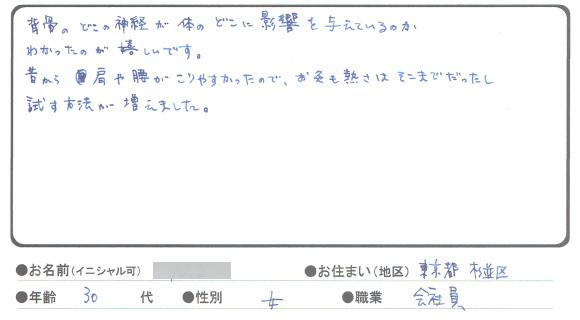 背骨のどこの神経が体のどこに影響を与えているのか
わかったのが嬉しいです。
昔から肩や腰がこりやすかったので、お灸も熱さはそこまでだったし
試す方法が増えました。
●お名前(イニシャル可) ●お住まい(地区) 東京都 杉並区
●年齢 30 代 ●性別 女 ●職業 会社員